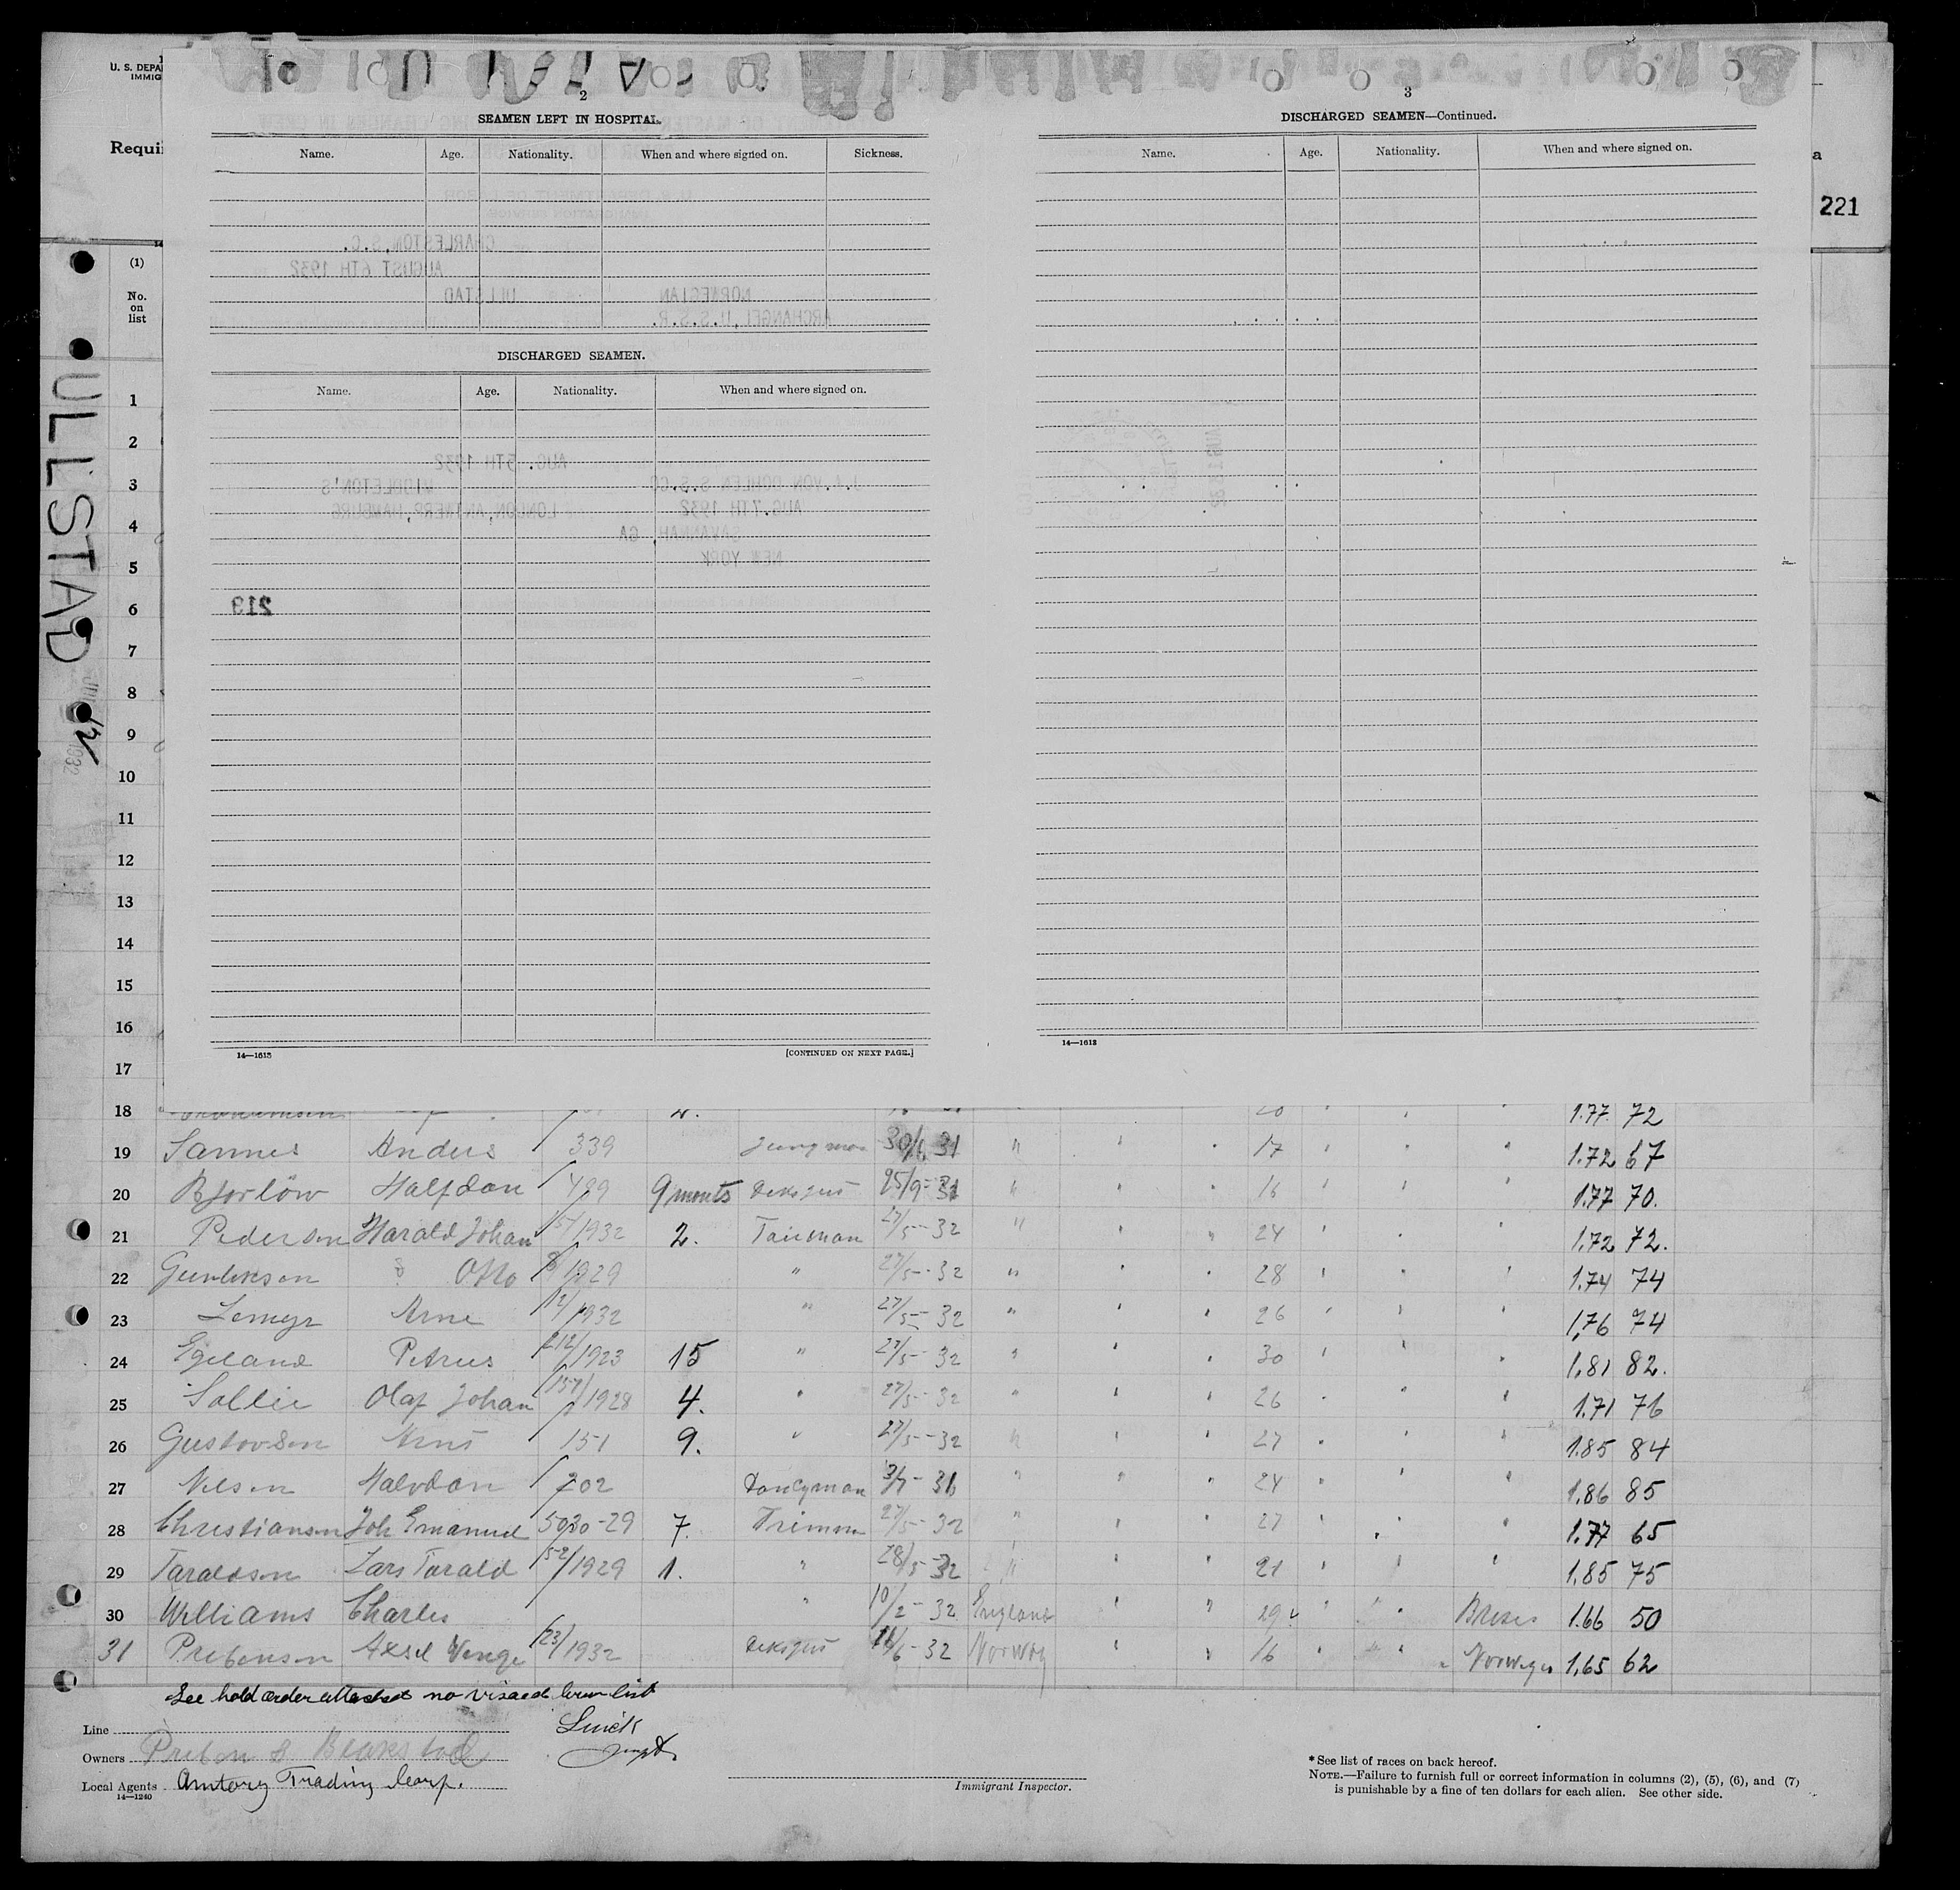 U. S. DEPA
IMMIG
Requi
a
221
ULLSTAD
2
SEAMEN LEFT IN HOSPITAL.
Name. Age. Nationality. When and where signed on. Sickness.
CHARLESTON, S.C.
AUGUST 6TH 1932
NORWEGIAN ULLSTAD
ARCHANGEL, U.S.S.R.
DISCHARGED SEAMEN.
Name. Age. Nationality. When and where signed on.
AUG. 5TH 1932
MIDDLETON'S
AUG. 7TH 1932 LONDON, ANTWERP, HAMBURG
SAVANNAH, GA
NEW YORK
219
14—1613 [CONTINUED ON NEXT PAGE.]
3
DISCHARGED SEAMEN—Continued.
Name. Age. Nationality. When and where signed on.
14—1613
(1)
No.
on
list
1
2
3
4
5
6
7
8
9
10
11
12
13
14
15
16
17
18 1.77 72
19 Sannes Anders 339 Jungman 31 " 17 1.72 67
20 Bjorlöw Halfdan 489 9 monts Deksgut 25/9-31 " 16 1.77 70.
21 Pederson Harald Johan 1932 2. 27/5-32 " 24 1.72 72.
22 Otto 8/1929 " 27/5-32 " 28 1.74 74
23 Arne 12/1932 " 27/5-32 " 26 1.76 74
24 Egeland Petrus 212/1923 15 " 27/5-32 " 30 1.81 82.
25 Sollie Olaf Johan 157/1928 4. " 27/5-32 " 26 1.71 76
26 Gustavsen 151 9. " 27/5-32 " 27 1.85 84
27 Nilsen Halvdan 202 Donkyman 31 " 24 1.86 85
28 Christiansen Joh Emanuel 5030-29 7. Trimm 27/5-32 " 27 1.77 65
29 Taraldsen Lars Tarald 52/1929 1. " 28/5-32 " 21 1.85 75
30 Williams Charles " 10/2-32 England " 29 1.66 50
31 Prebensen Axsel Wenge 23/1932 Deksgut 32 Norway " 16 Norweger 1.65 62
See hold order attached no visaed crew list
Line
Owners
Local Agents Amtorg Trading Corp.
14—1240
Immigrant Inspector.
* See list of races on back hereof.
NOTE.—Failure to furnish full or correct information in columns (2), (5), (6), and (7)
is punishable by a fine of ten dollars for each alien. See other side.